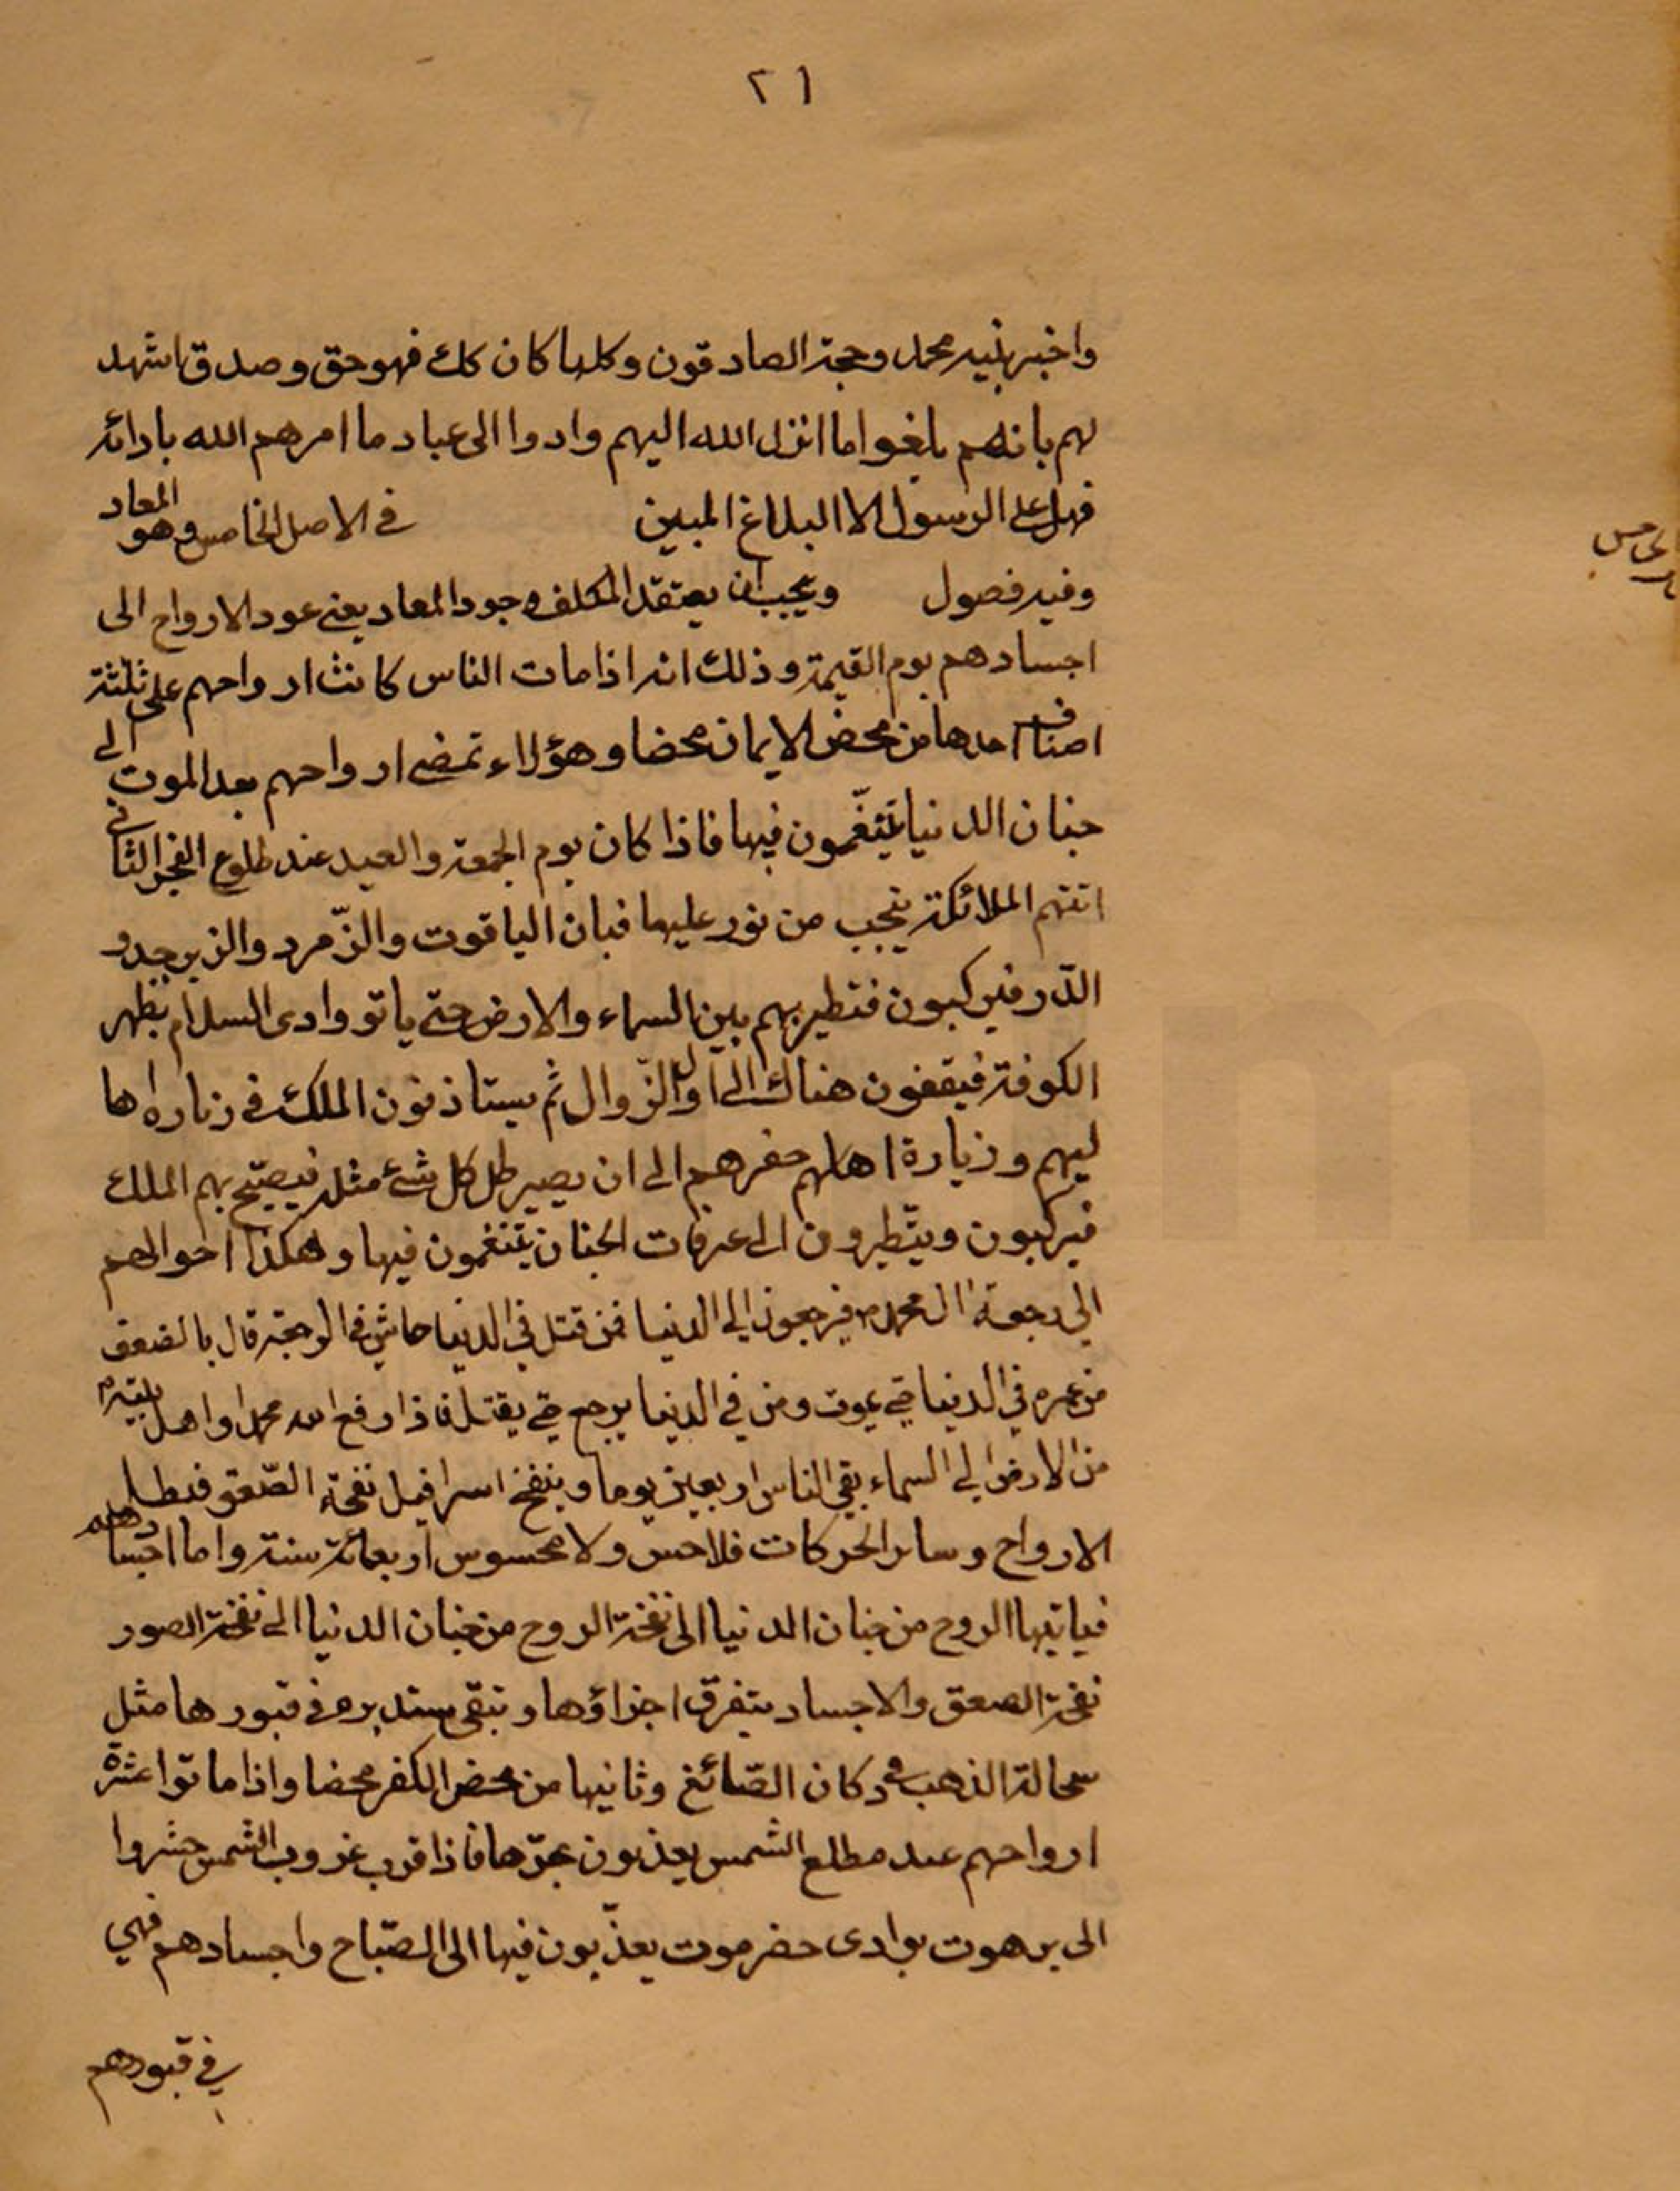 ٢١
واخبر بنبيه محمد وحججه الصادقون وكلما كان كك فهو حق وصدق اشهد
لهم بانهم بلغوا ما انزل الله اليهم وادوا الى عباد ما امرهم الله بادائه
فهل على الرسول الا البلاغ المبين في الاصل الخامس وهو المعاد
وفيه فصول ويجب ان يعتقد المكلف وجود المعاد يعنى عود الارواح الى
اجسادهم يوم القيمة وذلك انه اذا مات الناس كانت ارواحهم على ثلثة
اصناف احدها من محض الايمان محضا وهؤلاء تمضى ارواحهم بعد الموت الى
جنان الدنيا يتنعّمون فيها فاذا كان يوم الجمعة والعيد عند طلوع الفجر الثاني
اتتهم الملائكة بنجب من نور عليها قباب الياقوت والزّمرد والزبرجد و
الدّر فيركبون فتطير بهم بين السماء والارض حتى ياتو وادى السلام بظهر
الكوفة فيقفون هناك الى اول الزّوال ثم يستاذنون الملك في زيارة اها
ليهم وزيارة اهاليهم حفرهم الى ان يصير ظل كل شئ مثله فيصيّح بهم الملك
فيركبون ويتّطيرون الى غرفات الجنان يتنعّمون فيها وهكذا احوالهم
الى رجعة ال محمد م فيرجعون الى الدنيا فمن قتل في الدنيا عاش في الرجعة قال بالضعف
من عمره في الدنيا حتى يموت ومن في الدنيا يرجع حتى يقتل فاذا رفع الله محمدا واهل بيته م
من الارض الى السماء بقى الناس اربعين يوما وينفخ اسرافيل نفخة الصّعق فبطل
الارواح وساير الحركات فلا حس ولا محسوس اربعمائة سنة واما اجسادهم
فياتيها الروح من جنان الدنيا الى نفخة الروح من جنان الدنيا الى نفخة الصور
نفخة الصعق والاجساد يتفرق اجزاؤها وتبقى مستديره في قبورها مثل
سحالة الذهب في دكان الصّائغ وثانيها من محض الكفر محضا واذا ماتوا حشرة
ارواحهم عند مطلع الشمس يعذبون بحرّها فاذا قرب غروب الشمس حشروا
الى برهوت بوادى حضرموت يعذّبون فيها الى الصّباح واجسادهم فهي
في قبورهم